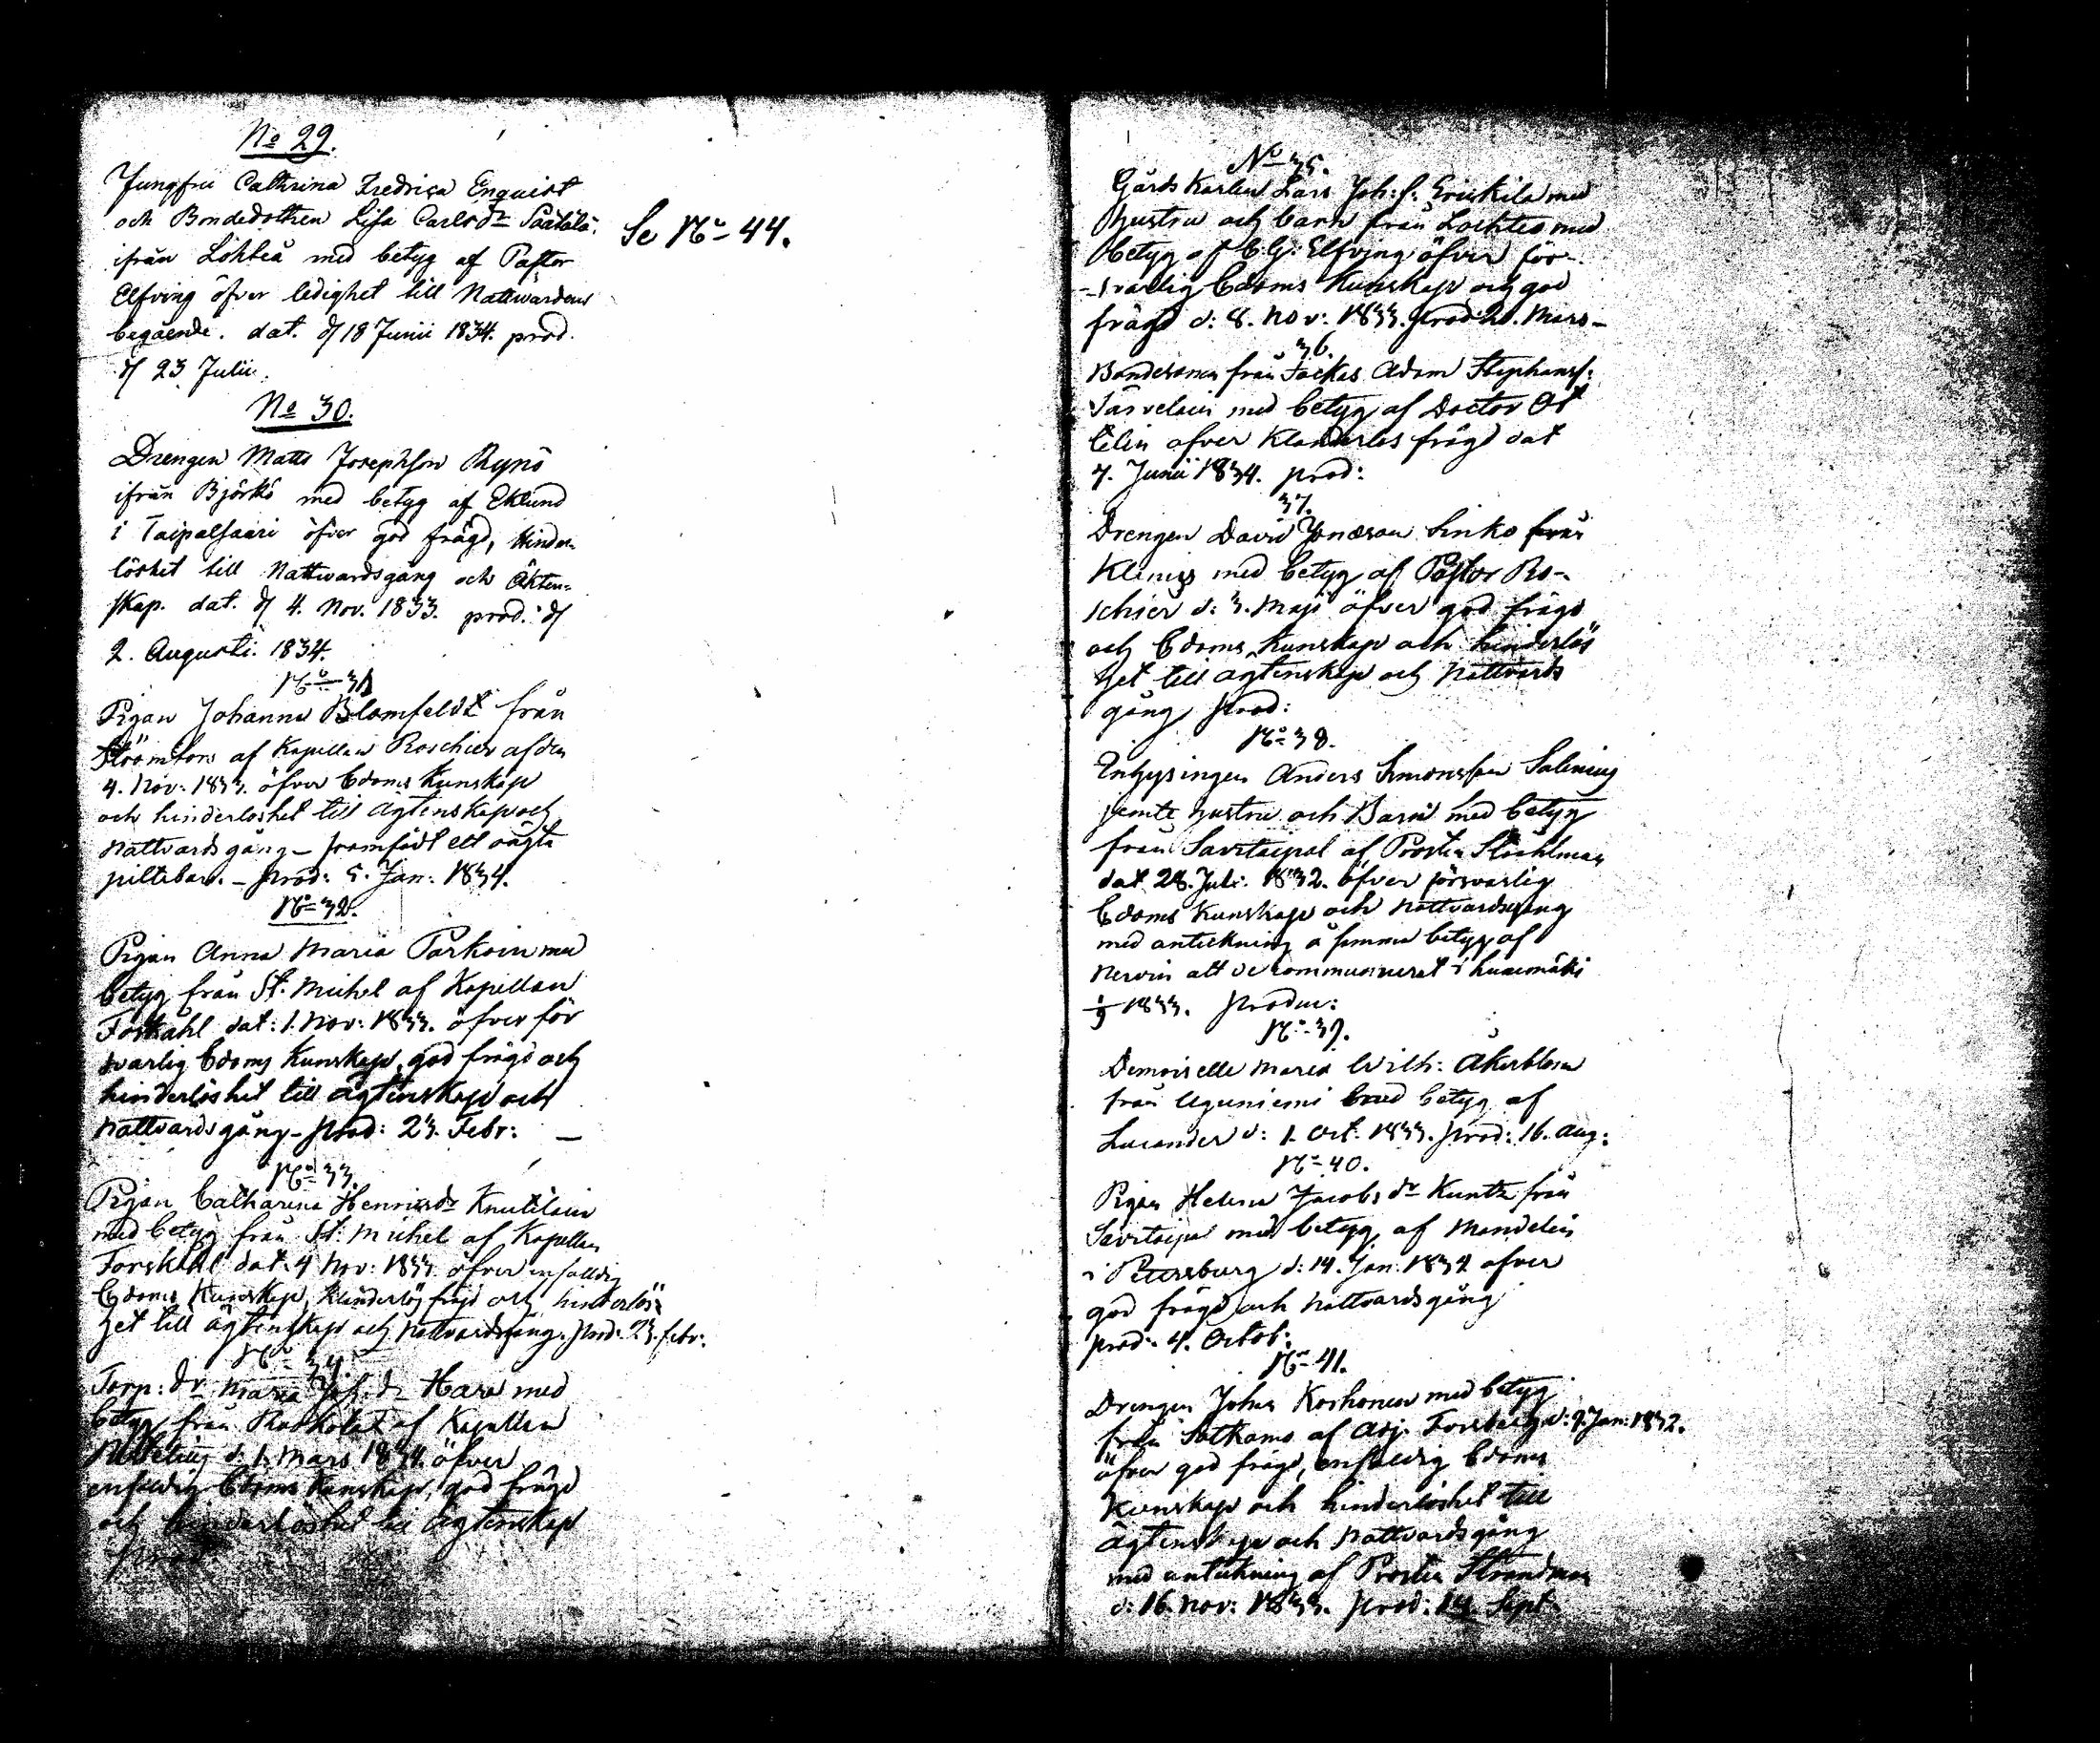 No 29.
Jungfru Cathrina Fredrica Enquist
och Bondedottren Lisa Carlsdr Säätälä.
ifrån Lohteå med betyg af Pastor
Elfving öfver ledighet till Nattwardens
begående. dat. d 18 Junii 1834. prod.
d 23 Julii.
Se No 44.
No 30.
Drengen Matts Josephson Rynö
ifrån Björkö med betyg af Eklund
i Taipalsaari öfver god frägd, hinder-
löshet till Nattwardsgång och Äkten-
skap. dat. d 4. Nov. 1833. prod. d
2. Augusti. 1834.
No 31
Pigan Johanna Blomfeldt från
Strömfors af Kapellan Roschier af den
4. Nov: 1833. öfver Cdoms Kunskap
och hinderloshet till Agtenskap och
nattvardsgång - framfödt ett oägta
piltebarn. - prod: 5. Jan: 1834.
No 32.
Pigan Anna Maria Parkoin med
betyg från St. Michel af Kapellan
Forskahl dat: 1. Nov: 1833. öfver för
svarlig Cdoms Kunskap, god frägd och
hinderlöshet till Ägtenskap och
Nattvardsgång - prod: 23. Febr: -
No 33.
Pigan Catharina Henricsdr Knutilain
med betyg från St: Michel af Kapellan
Forskåhl dat. 4 Nov: 1833 öfver enfalldig
Cdoms Kunskap, Klanderlös frägd och hinderlös-
het till ägtenskap och Nattvardsgång. prod: 23. febr:
No 34.
Torp: dr Maria Joh: dr Hara med
betyg från Kapellan
d: 1. Mars 1834. öfver
enfaldig Cdoms Kunskap, god frägd
och hinderlöshet till Ägtenskap
prod:
No 35.
Gårds Karlen Lars Joh: s: Erickila med
hustru och barn från Lochteo med
betyg af C. G. Elfving öfver för-
-svarlig Cdoms Kunskap och god
frägd d: 8. Nov: 1833. prod: 21. Mars -
36.
Bondesonen från Jockas Adam Stephanss:
Tarvelain med betyg af Doctor
öfver Klanderlös frägd dat
7. Junii 1834. prod:
37.
Drengen David Jonæson Sinko från
Klemis med betyg af Pastor Ro-
schier d: 3. Maji öfver god frägd
och Cdoms Kunskap och hinderlös
het till agtenskap och Nattvards
gång prod:
No 38.
Inhysingen Anders Simonsson Salenius
jemte hustru och Barn med betyg
från Savitaipal af Prosten Ståhlman
dat 28. Juli. 1832. öfver försvarlig
Cdoms Kunskap och Nattvardsgång
med anteckning å samma betyg af
Nervin att de communiserat i Luumäki
1/9 1833. Produc:
No 39.
Demoiselle Maria Wilh: Åkerblom
från Uguniemi med betyg af
Lucander d: 1. Oct: 1833. prod: 16. Aug:
No 40.
Pigan Helena Jacobs dr Kuntz från
Savitaipal med betyg af Mandelin
i Petersburg d: 14. Jan: 1834 öfver
god frägd och Nattvardsgång
prod: 4. Octob:
No 41.
Drengen Johan Korhonen med betyg
från Sotkamo af Adj. Forsberg d: 9. Jan: 1832.
öfver god frägd, enfaldig Cdoms
Kunskap och hinderlöshet till
Ägtenskap och Nattvardsgång
med anteckning af Prosten Strandman
d: 16. Nov: 1833. prod: 14. Sept.